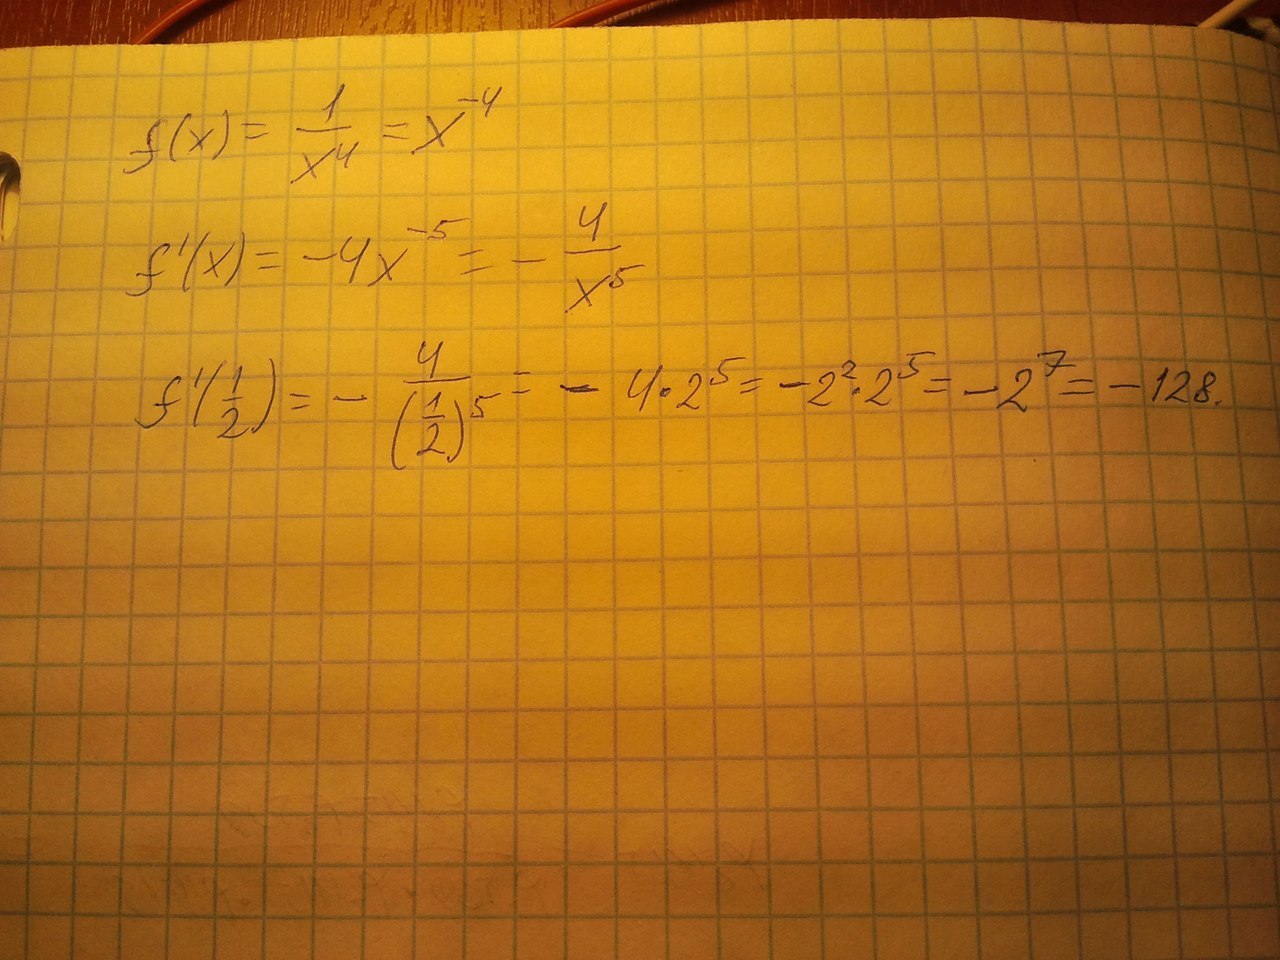 f(x) = 1/x⁴ = x⁻⁴
f'(x) = -4x⁻⁵ = - 4/x⁵
f'(1/2) = - 4/(1/2)⁵ = - 4·2⁵ = -2²·2⁵ = -2⁷ = -128.